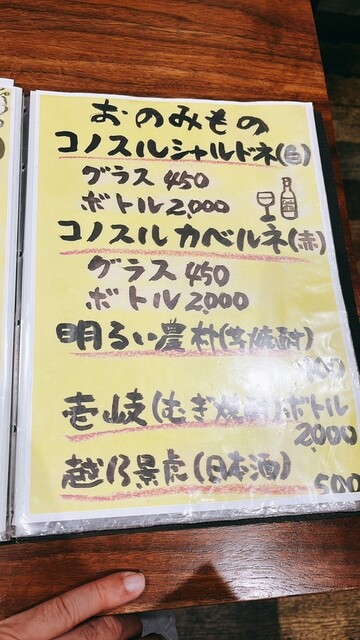 おのみもの
コノスルシャルドネ(白)
グラス 450
ボトル 2,000
コノスルカベルネ(赤)
グラス 450
ボトル 2,000
明るい農村(芋焼酎)
壱岐(むぎ焼酎)ボトル
2,000
越乃景虎(日本酒)
500